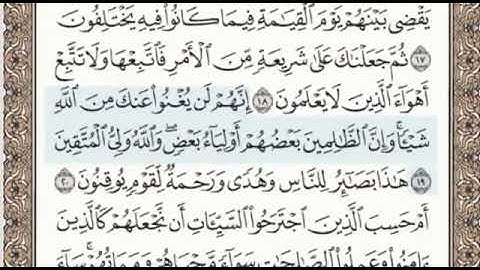 يَقْضِى بَيْنَهُمْ يَوْمَ ٱلْقِيَـٰمَةِ فِيمَا كَانُوا۟ فِيهِ يَخْتَلِفُونَ
١٧ ثُمَّ جَعَلْنَـٰكَ عَلَىٰ شَرِيعَةٍ مِّنَ ٱلْأَمْرِ فَٱتَّبِعْهَا وَلَا تَتَّبِعْ
أَهْوَآءَ ٱلَّذِينَ لَا يَعْلَمُونَ ١٨ إِنَّهُمْ لَن يُغْنُوا۟ عَنكَ مِنَ ٱللَّهِ
شَيْـًٔا ۚ وَإِنَّ ٱلظَّـٰلِمِينَ بَعْضُهُمْ أَوْلِيَآءُ بَعْضٍ ۖ وَٱللَّهُ وَلِىُّ ٱلْمُتَّقِينَ
١٩ هَـٰذَا بَصَـٰٓئِرُ لِلنَّاسِ وَهُدًى وَرَحْمَةٌ لِّقَوْمٍ يُوقِنُونَ ٢٠
أَمْ حَسِبَ ٱلَّذِينَ ٱجْتَرَحُوا۟ ٱلسَّيِّـَٔاتِ أَن نَّجْعَلَهُمْ كَٱلَّذِينَ
ءَامَنُوا۟ وَعَمِلُوا۟ ٱلصَّـٰلِحَـٰتِ سَوَآءً مَّحْيَاهُمْ وَمَمَاتُهُمْ ۚ سَآءَ